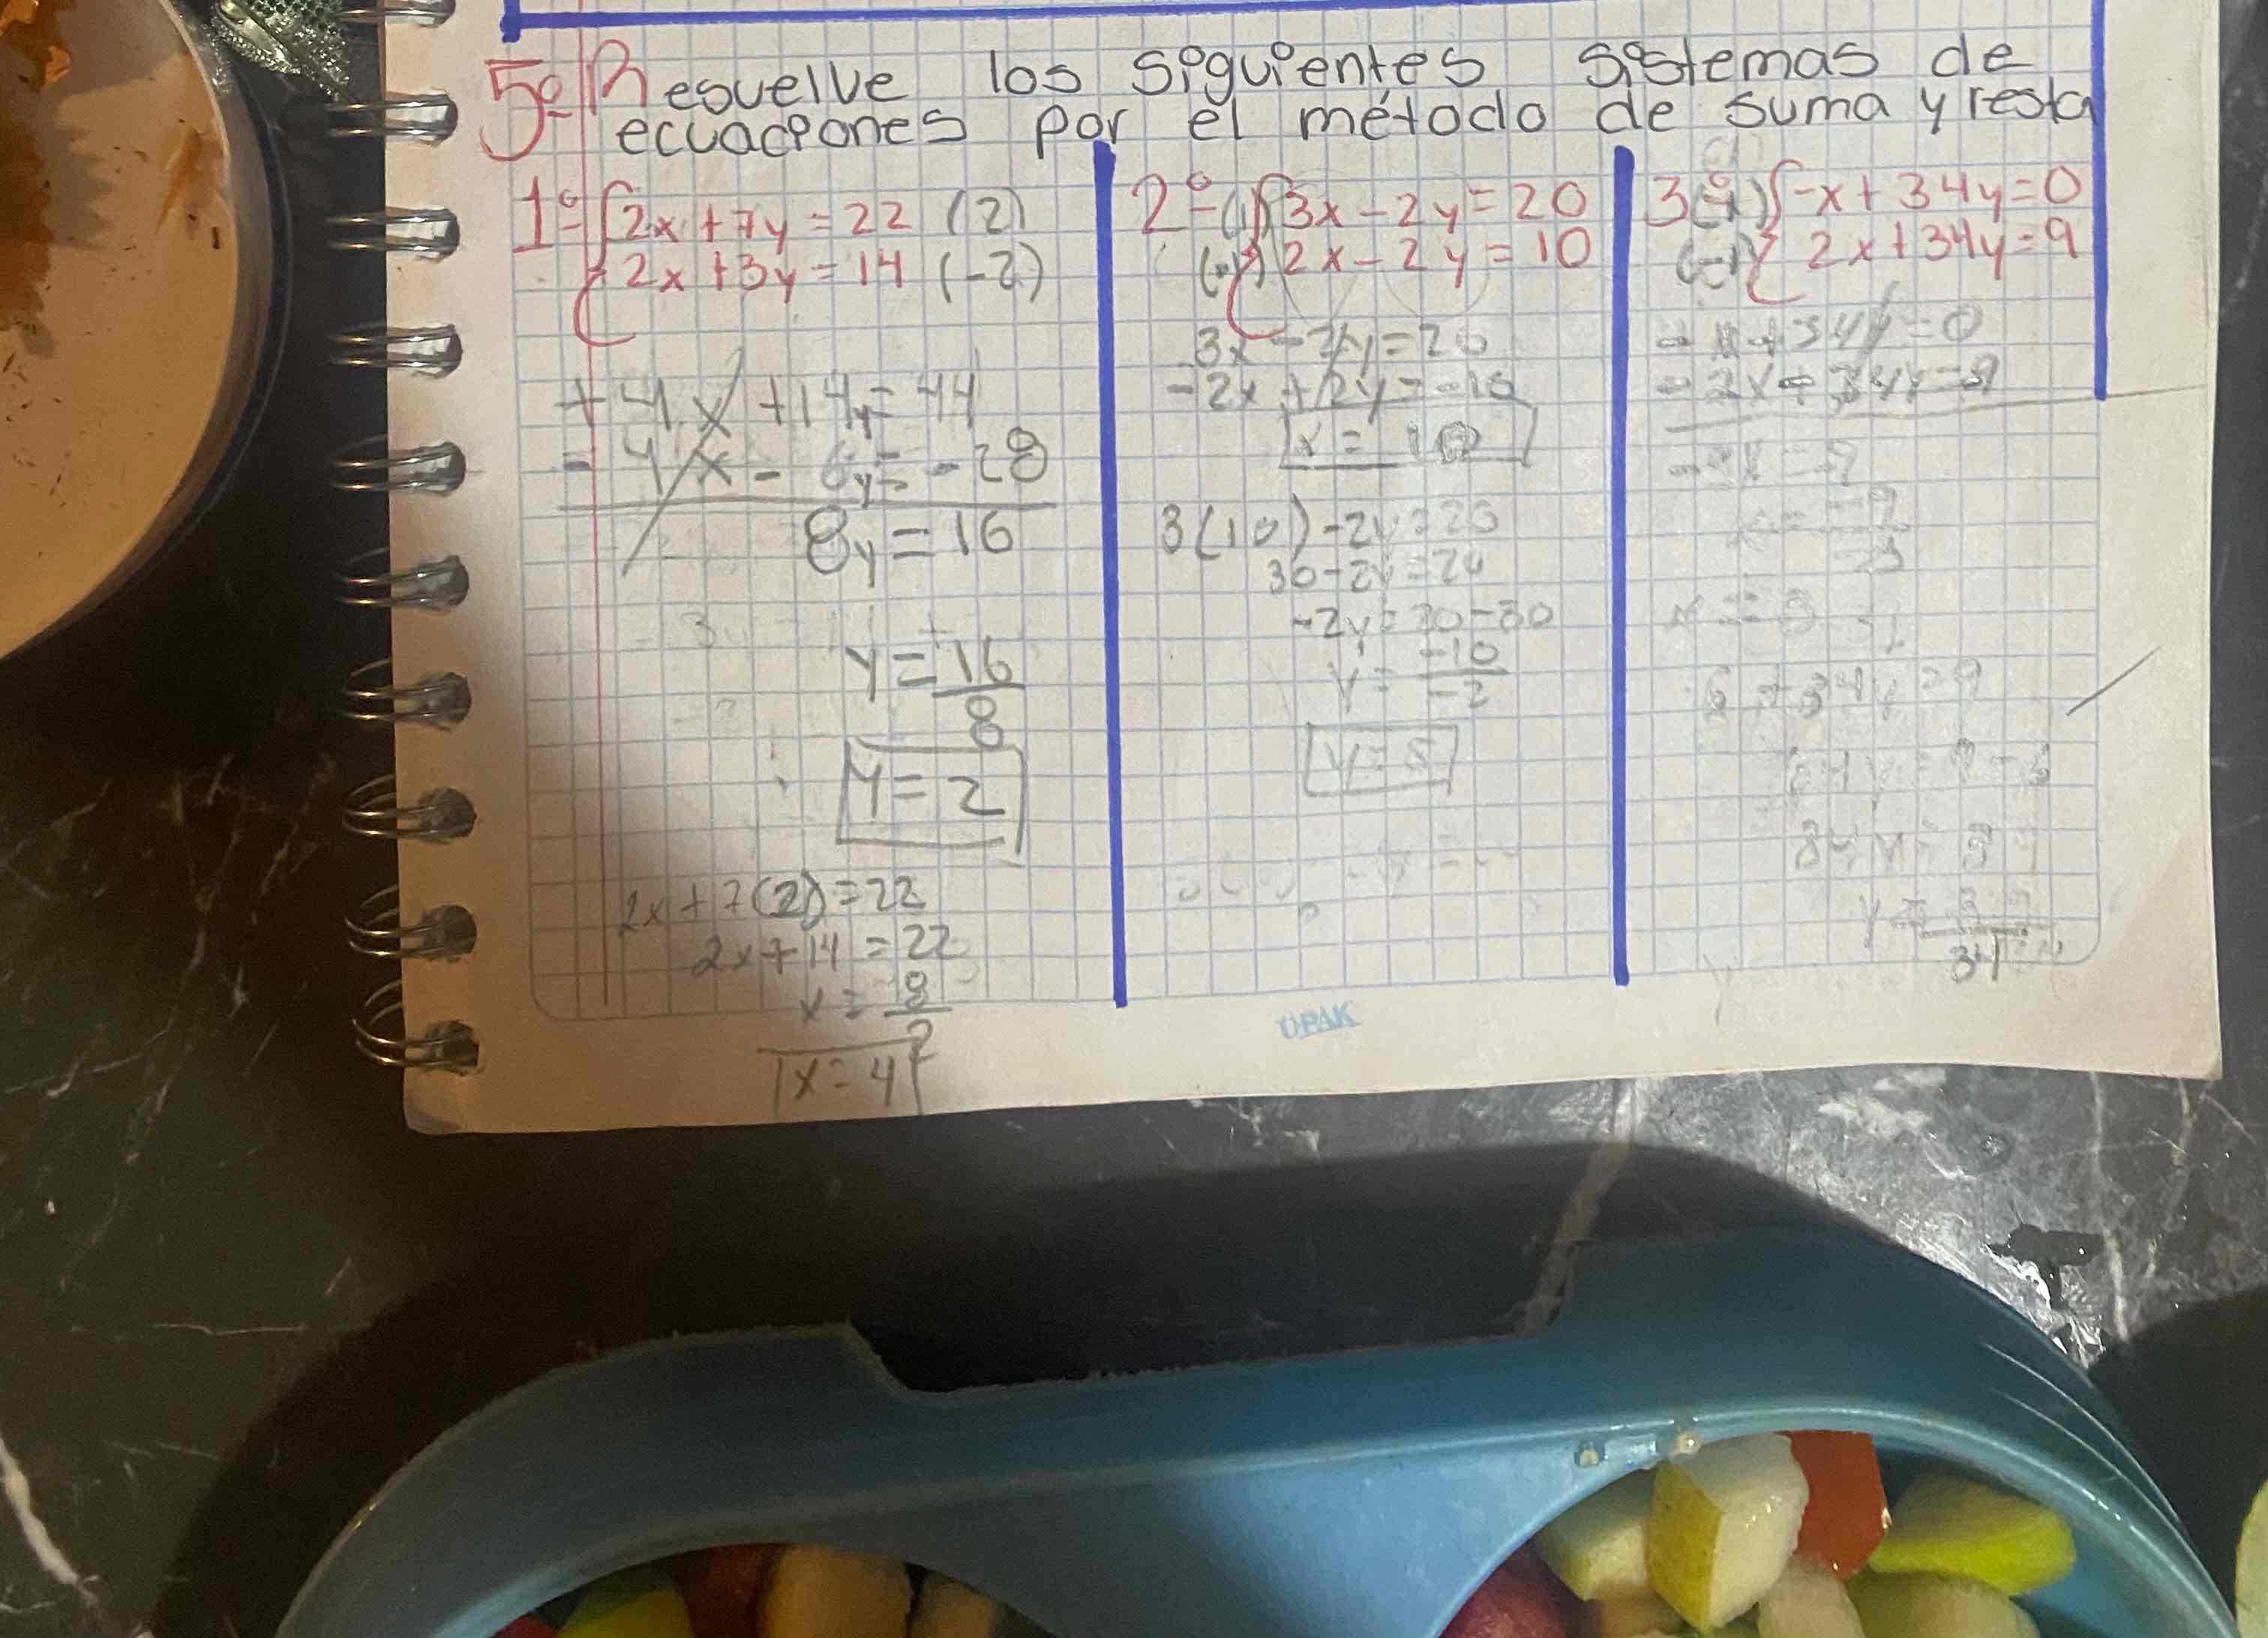 5º- Resuelve los siguientes sistemas de
ecuaciones por el método de suma y resta
1º- 2x + 7y = 22 (2)
2x + 3y = 14 (-2)
+ 4x + 14y = 44
- 4x - 6y = - 28
8y = 16
y = 16
8
y = 2
2x + 7(2) = 22
2x + 14 = 22
x = 8
2
x = 4
2º- (1) 3x - 2y = 20
(-1) 2x - 2y = 10
3x - 2y = 20
-2x + 2y = -10
x = 10
3(10) - 2y = 20
30 - 2y = 20
-2y = 20 - 30
y = -10
-2
y = 5
3º -x + 34y = 0
(-1) 2x + 34y = 9
-x + 34y = 0
- 2x - 34y = -9
-3x = -9
x = -9
-3
x = 3
6 + 34y = 9
34y = 9 - 6
34y = 3
y = 3
34
OPAK